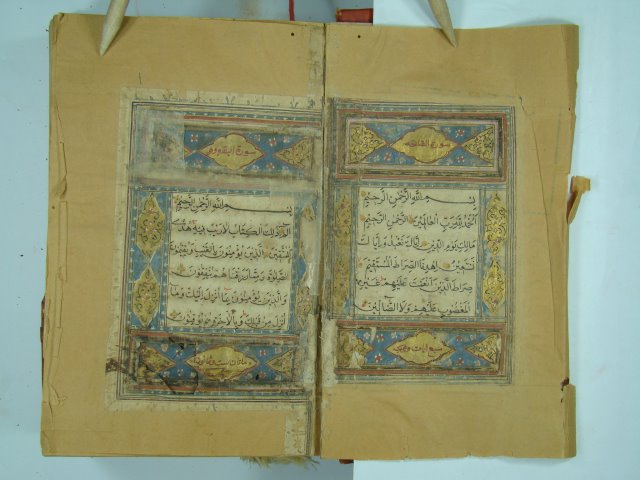 سورة الفاتحه
بسم الله الرحمن الرحيم
الحمد لله رب العالمين الرحمن الرحيم
مالك يوم الدين اياك نعبد واياك
نستعين اهدنا الصراط المستقيم
صراط الذين انعمت عليهم غير
المغضوب عليهم ولا الضالين
سورة البقرة
بسم الله الرحمن الرحيم
الم ذلك الكتاب لا ريب فيه هدى
للمتقين الذين يؤمنون بالغيب ويقيمون
الصلوة ومما رزقناهم ينفقون
والذين يؤمنون بما انزل اليك وما
انزل من قبلك وبالاخرة هم يوقنون